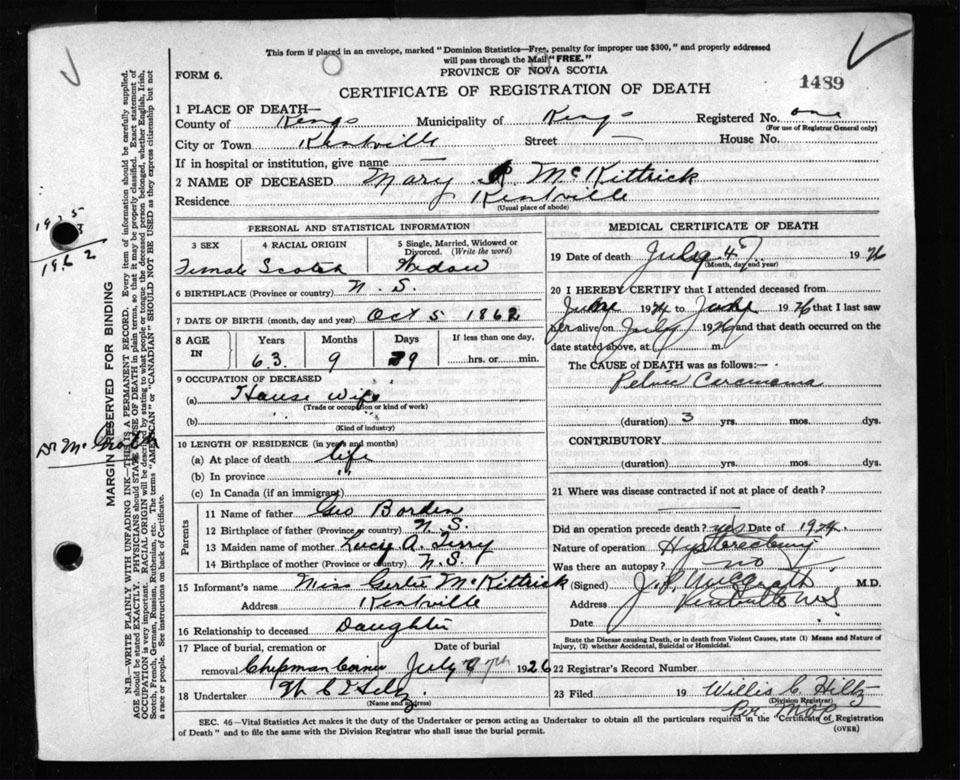 This form if placed in an envelope, marked "Dominion Statistics—Free, penalty for improper use $300," and properly addressed
will pass through the Mail "FREE."
PROVINCE OF NOVA SCOTIA
FORM 6.
1489
CERTIFICATE OF REGISTRATION OF DEATH
1 PLACE OF DEATH—
County of Kings Municipality of Kings Registered No. one
(For use of Registrar General only)
City or Town Kentville Street — House No.
If in hospital or institution, give name —
2 NAME OF DECEASED Mary R. McKittrick
Residence Kentville
(Usual place of abode)
PERSONAL AND STATISTICAL INFORMATION
3 SEX 4 RACIAL ORIGIN 5 Single, Married, Widowed or
Divorced. (Write the word)
Female Scotch Widow
6 BIRTHPLACE (Province or country) N. S.
7 DATE OF BIRTH (month, day and year) Oct 5 1862
8 AGE IN Years Months Days If less than one day,
63 9 29 hrs. or min.
9 OCCUPATION OF DECEASED
(a) House wife
(Trade or occupation or kind of work)
(b)
(Kind of industry)
10 LENGTH OF RESIDENCE (in years and months)
(a) At place of death life
(b) In province "
(c) In Canada (if an immigrant)
Parents
11 Name of father Geo Borden
12 Birthplace of father (Province or country) N. S.
13 Maiden name of mother Lucy A. Terry
14 Birthplace of mother (Province or country) N. S.
15 Informant's name Miss Gertie McKittrick
Address Kentville
16 Relationship to deceased Daughter
17 Place of burial, cremation or Date of burial
removal Chipman Corner July 7th 1926
18 Undertaker W C Hiltz.
(Name and address)
MEDICAL CERTIFICATE OF DEATH
19 Date of death July 4 1926
(Month, day and year)
20 I HEREBY CERTIFY that I attended deceased from
June 1924 to June 1926 that I last saw
her alive on July 1926 and that death occurred on the
date stated above, at m.
The CAUSE OF DEATH was as follows:—
Pelvic Carcinoma
(duration) 3 yrs. mos. dys.
CONTRIBUTORY
(duration) yrs. mos. dys.
21 Where was disease contracted if not at place of death?
Did an operation precede death? yes Date of 1924.
Nature of operation
Was there an autopsy? no
(Signed) J. P. McGrath M.D.
Address Kentville N S
Date
State the Disease causing Death, or in death from Violent Causes, state (1) Means and Nature of
Injury, (2) whether Accidental, Suicidal or Homicidal.
22 Registrar's Record Number
23 Filed 19 Willis C. Hiltz
(Division Registrar)
Per.
SEC. 46—Vital Statistics Act makes it the duty of the Undertaker or person acting as Undertaker to obtain all the particulars required in the "Certificate of Registration
of Death" and to file the same with the Division Registrar who shall issue the burial permit.
(OVER)
1862
Dr McGrath
MARGIN RESERVED FOR BINDING
N.B.—WRITE PLAINLY WITH UNFADING INK—THIS IS A PERMANENT RECORD. Every item of information should be carefully supplied.
AGE should be stated EXACTLY. PHYSICIANS should STATE CAUSE OF DEATH in plain terms, so that it may be properly classified. Exact statement of
OCCUPATION is very important. RACIAL ORIGIN will be described by stating to what people or tongue the deceased person belonged, whether English, Irish,
Scotch, French, German, Russian, Ruthenian, etc. The terms "AMERICAN" or "CANADIAN" SHOULD NOT BE USED as they express citizenship but not
a race or people. See instructions on back of Certificate.